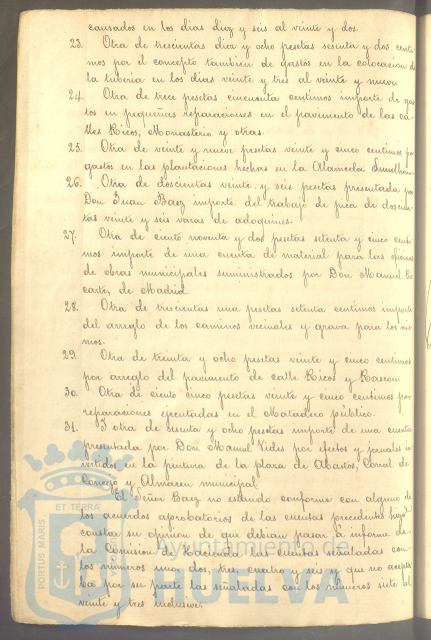 causados en los dias diez y seis al veinte y dos.
23. Otra de trescientas diez y ocho pesetas sesenta y dos centi
mos por el concepto tambien de gastos en la colocacion de
la tuberia en los dias veinte y tres al veinte y nueve.
24. Otra de trece pesetas cincuenta centimos importe de gas
tos en pequeñas reparaciones en el pavimento de las ca-
lles Ricos, Monasterio y otras.
25. Otra de veinte y nueve pesetas veinte y cinco centimos por
gastos en las plantaciones hechas en la Alameda Sundheim
26. Otra de doscientas veinte y seis pesetas presentada por
Don Juan Baez importe del trabajo de pica de doscien
tas veinte y seis varas de adoquines.
27. Otra de ciento noventa y dos pesetas setenta y cinco centi
mos importe de una cuenta de material para las oficinas
de obras municipales suministrados por Don Manuel
carte, de Madrid
28. Otra de trescientas una pesetas setenta centimos importe
del arreglo de los caminos vecinales y grava para los mis
mos.
29. Otra de treinta y ocho pesetas veinte y cinco centimos
por arreglo del pavimento de calle Ricos y Rascon
30. Otra de ciento cinco pesetas veinte y cinco centimos por
reparaciones ejecutadas en el Matadero público.
31. Y otra de sesenta y ocho pesetas importe de una cuenta
presentada por Don Manuel Vides por efectos y jornales in
vertidos en la pintura de la plaza de Abastos, Corral de
Concejo y Almacen municipal
El Señor Baez no estando conforme con alguno de
los acuerdos aprobatorios de las cuentas precedentes hizo
constar su opinion de que debian pasar á informe de
la Comision de Hacienda las cuentas señaladas con
los números uno, dos, tres, cuatro y seis y que no acepta
ba por su parte las señaladas con los números siete al
veinte y tres inclusive.
PORTUS MARIS
ET TERRÆ
Ayuntamiento de
HUELVA